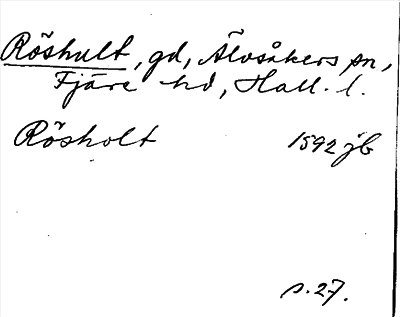 Röshult, gd, Älvsåkers sn,
Fjäre hd, Hall. l.
Rösholt 1592 jb
s. 27.